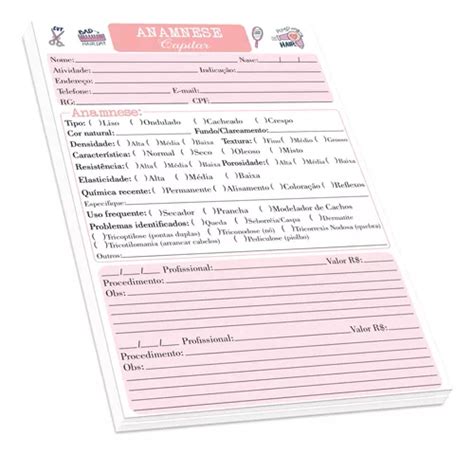 CUT
BAD
HAIR DAY
ANAMNESE
Capilar
HAIR!
Nome: Nasc: / /
Atividade: Indicação:
Endereço:
Telefone: E-mail:
RG: CPF:
Anamnese:
Tipo: ( )Liso ( )Ondulado ( )Cacheado ( )Crespo
Cor natural: Fundo/Clareamento:
Densidade: ( )Alta ( )Média ( )Baixa Textura: ( )Fino( )Média ( )Grosso
Característica: ( )Normal ( )Seco ( )Oleoso ( )Misto
Resistência: ( )Alta ( )Média ( )Baixa Porosidade: ( )Alta( )Média ( )Baixa
Elasticidade: ( )Alta ( )Média ( )Baixa
Química recente: ( )Permanente ( )Alisamento ( )Coloração ( )Reflexos
Especifique:
Uso frequente: ( )Secador ( )Prancha ( )Modelador de Cachos
Problemas identificados: ( )Queda ( )Seborréia/Caspa ( )Dermatite
( )Tricoptilose (pontas duplas) ( )Triconodose (nó) ( )Tricorrexis Nodosa (quebra)
( )Tricotilomania (arrancar cabelos) ( )Pediculose (piolho)
/ / Profissional: Valor R$:
Procedimento:
Obs:
/ / Profissional: Valor R$:
Procedimento:
Obs: